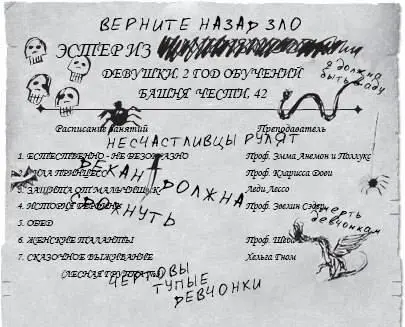 ВЕРНИТЕ НАЗАД ЗЛО
ЭСТЕР ИЗ
Я ДОЛЖНА БЫТЬ В АДУ
ДЕВУШКИ, 2 ГОД ОБУЧЕНИЙ
БАШНЯ ЧЕСТИ, 42
Расписание занятий
Преподаватель
НЕСЧАСТЛИВЦЫ РУЛЯТ
1. ЕСТЕСТВЕННО - НЕ БЕЗОБРАЗНО
Проф. Эмма Анемон и Поллукс
2. СИЛА ПРИНЦЕСС
Проф. Кларисса Дови
ДЕКАНА ДОЛЖНА СДОХНУТЬ
3. ЗАЩИТА ОТ МАЛЬЧИШЕК
Леди Лессо
4. ИСТОРИЯ ГЕРОИНЬ
Проф. Эвелин Садер
5. ОБЕД
СМЕРТЬ ДЕВЧОНКАМ
6. ЖЕНСКИЕ ТАЛАНТЫ
Проф.
7. СКАЗОЧНОЕ ВЫЖИВАНИЕ
Хельга Гном
(ЛЕСНАЯ ГРУППА
ЧЕРТОВЫ
ТУПЫЕ
ДЕВЧОНКИ